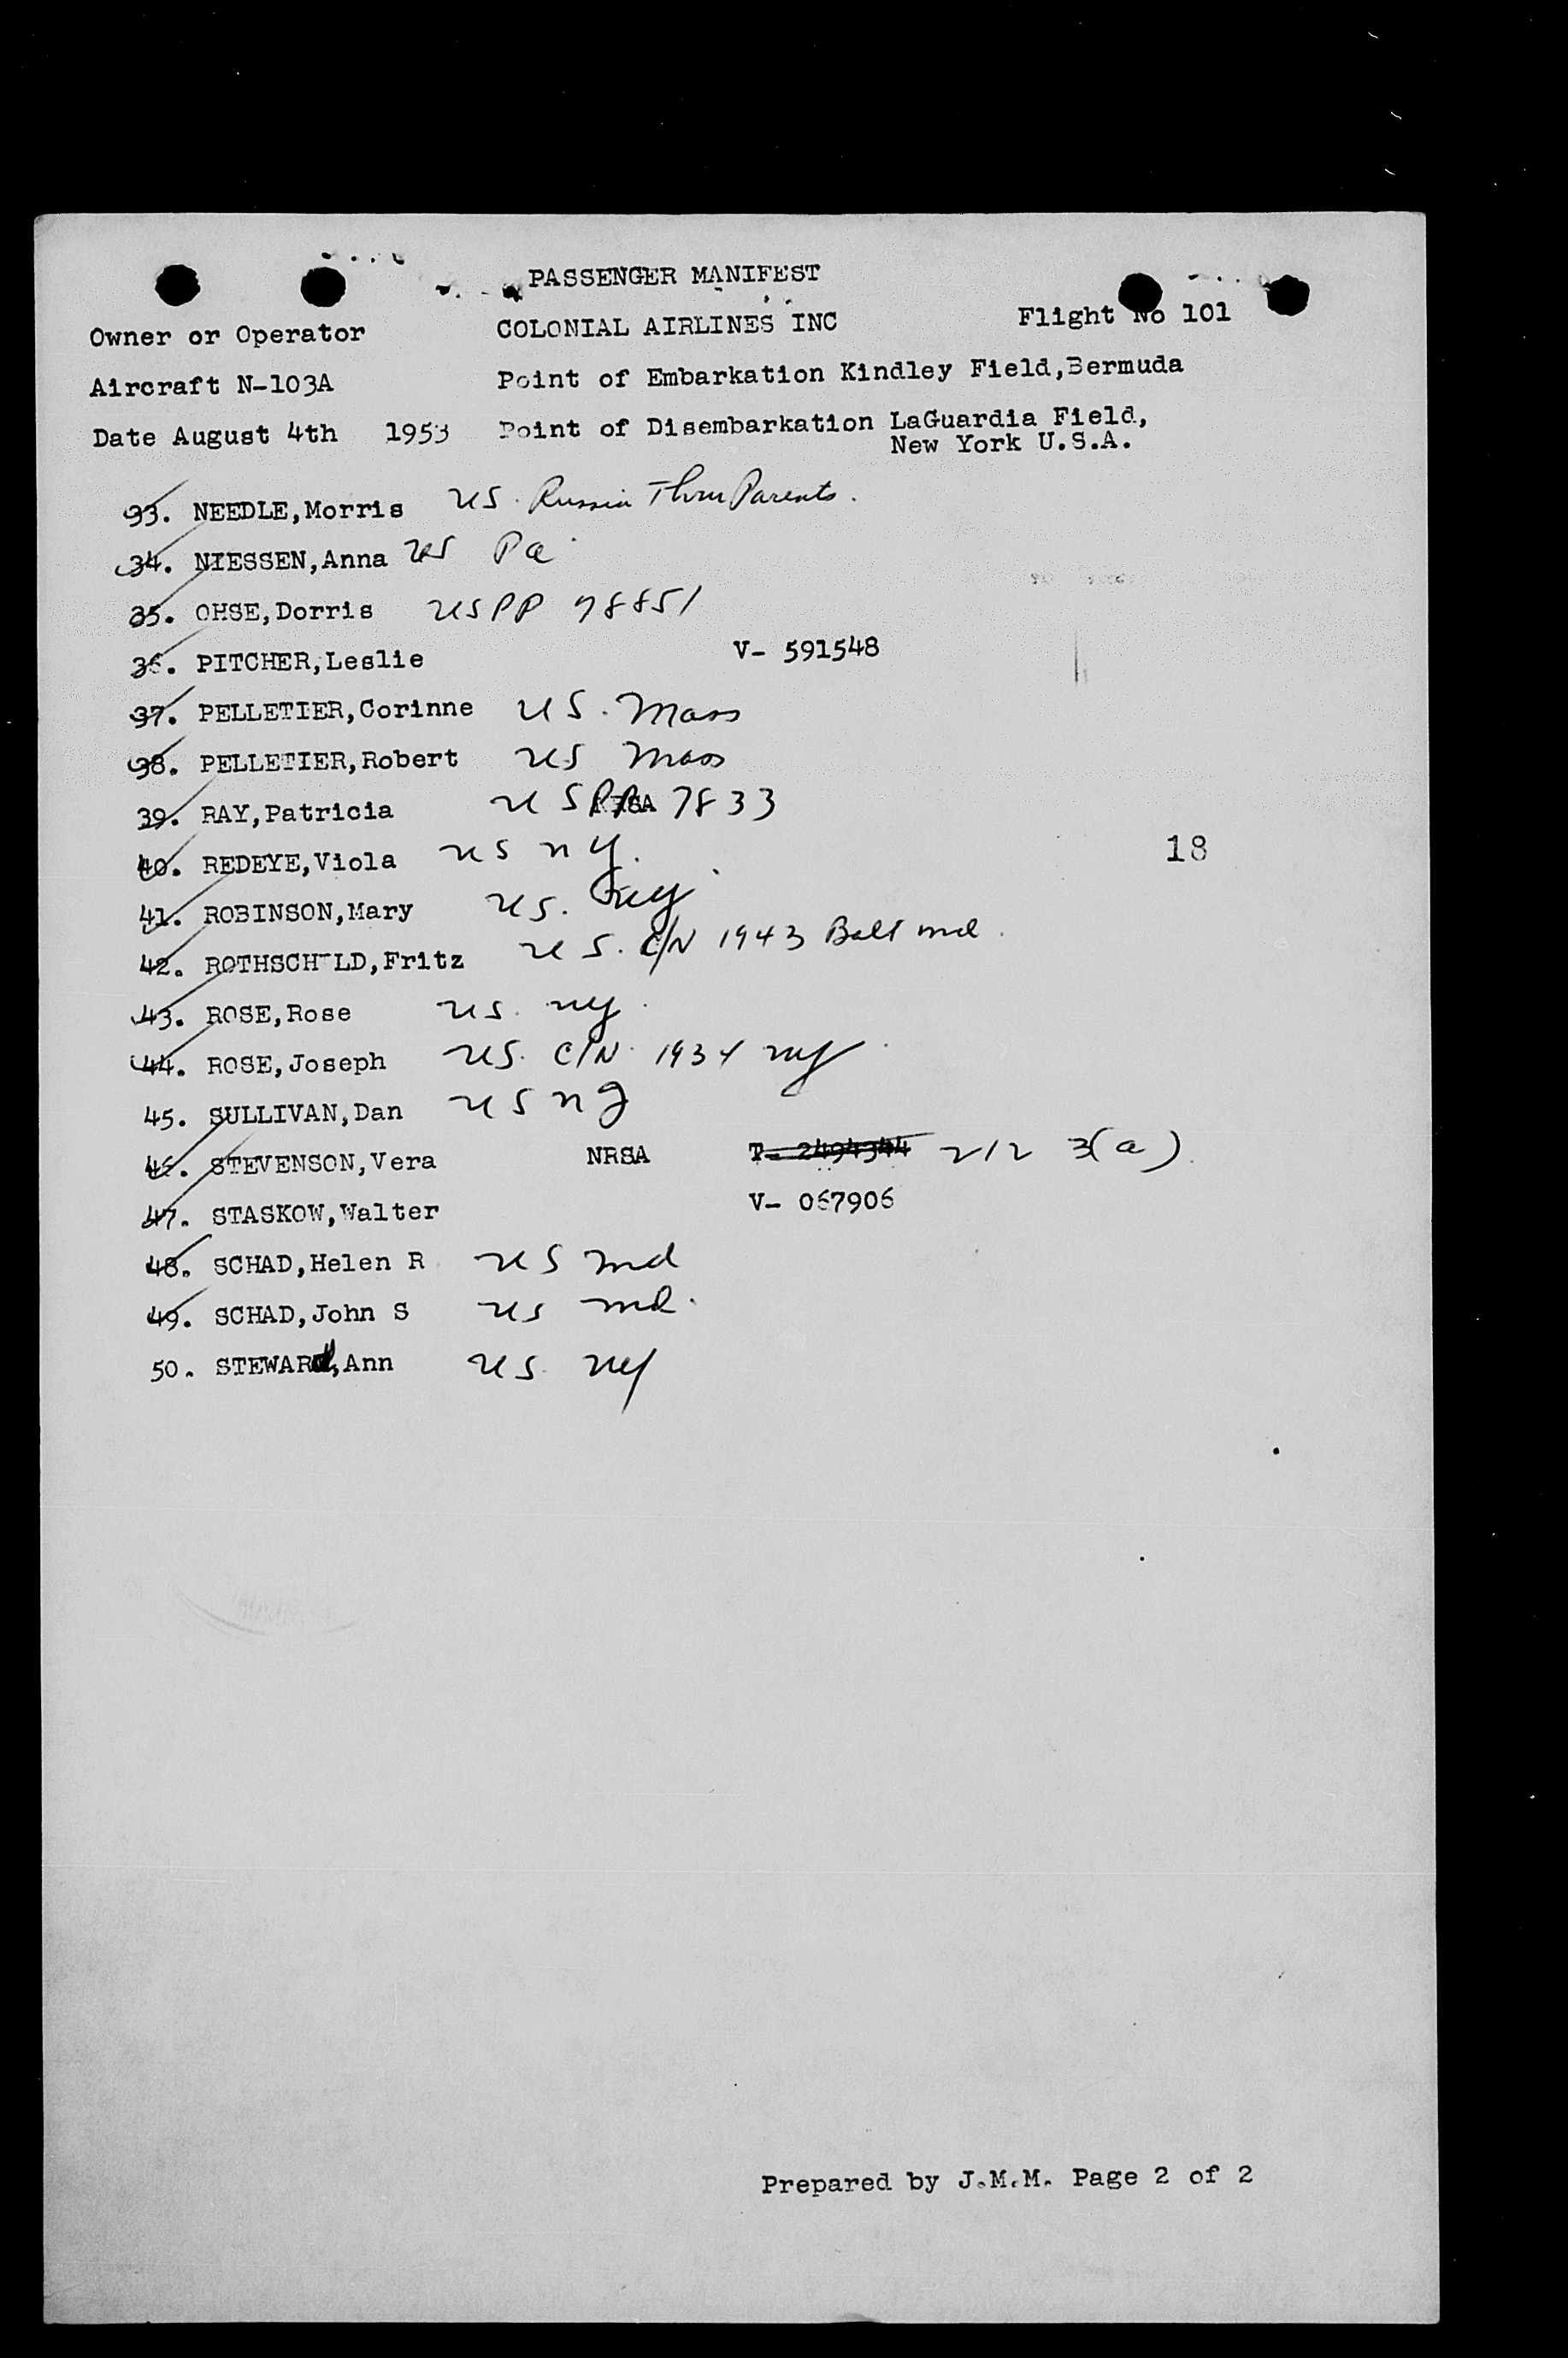 PASSENGER MANIFEST
Owner or Operator COLONIAL AIRLINES INC Flight No 101
Aircraft N-103A Point of Embarkation Kindley Field,Bermuda
Date August 4th 1953 Point of Disembarkation LaGuardia Field,
New York U.S.A.
33. NEEDLE,Morris US. Russia Thru Parents.
34. NIESSEN,Anna US Pa
35. OHSE,Dorris US PP 98851
36. PITCHER,Leslie V- 591548
37. PELLETIER,Corinne US. Mass
38. PELLETIER,Robert US Mass
39. RAY,Patricia US PP 7833
40. REDEYE,Viola US NY. 18
41. ROBINSON,Mary US. NY
42. ROTHSCHILD,Fritz US. C/N 1943 Balt Md.
43. ROSE,Rose US. NY.
44. ROSE,Joseph US. C/N. 1934 NY
45. SULLIVAN,Dan US NJ
46. STEVENSON,Vera NRSA T- 2494344 212 3(a)
47. STASKOW,Walter V- 067906
48. SCHAD,Helen R US Md
49. SCHAD,John S US Md.
50. STEWARd,Ann US. NY
Prepared by J.M.M. Page 2 of 2